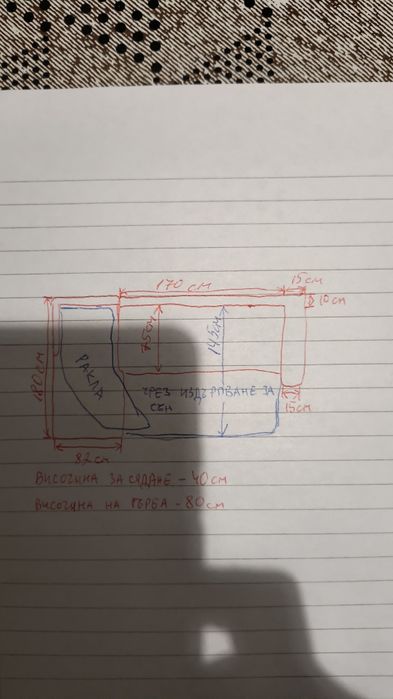 170 см
15см
10см
180 см
75см
145см
РАКЛА
ЧРЕЗ ИЗДЪРПВАНЕ ЗА
СЪН
15см
82см
ВИСОЧИНА ЗА СЯДАНЕ - 40см
ВИСОЧИНА НА ГЪРБА - 80см